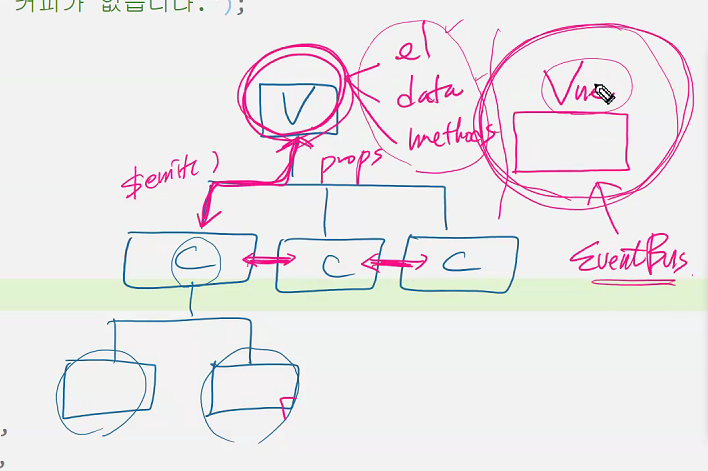 커피가 없습니다.");
el
data
methods
V
Vue
$emit( )
props
C
C
C
EventBus
,
,